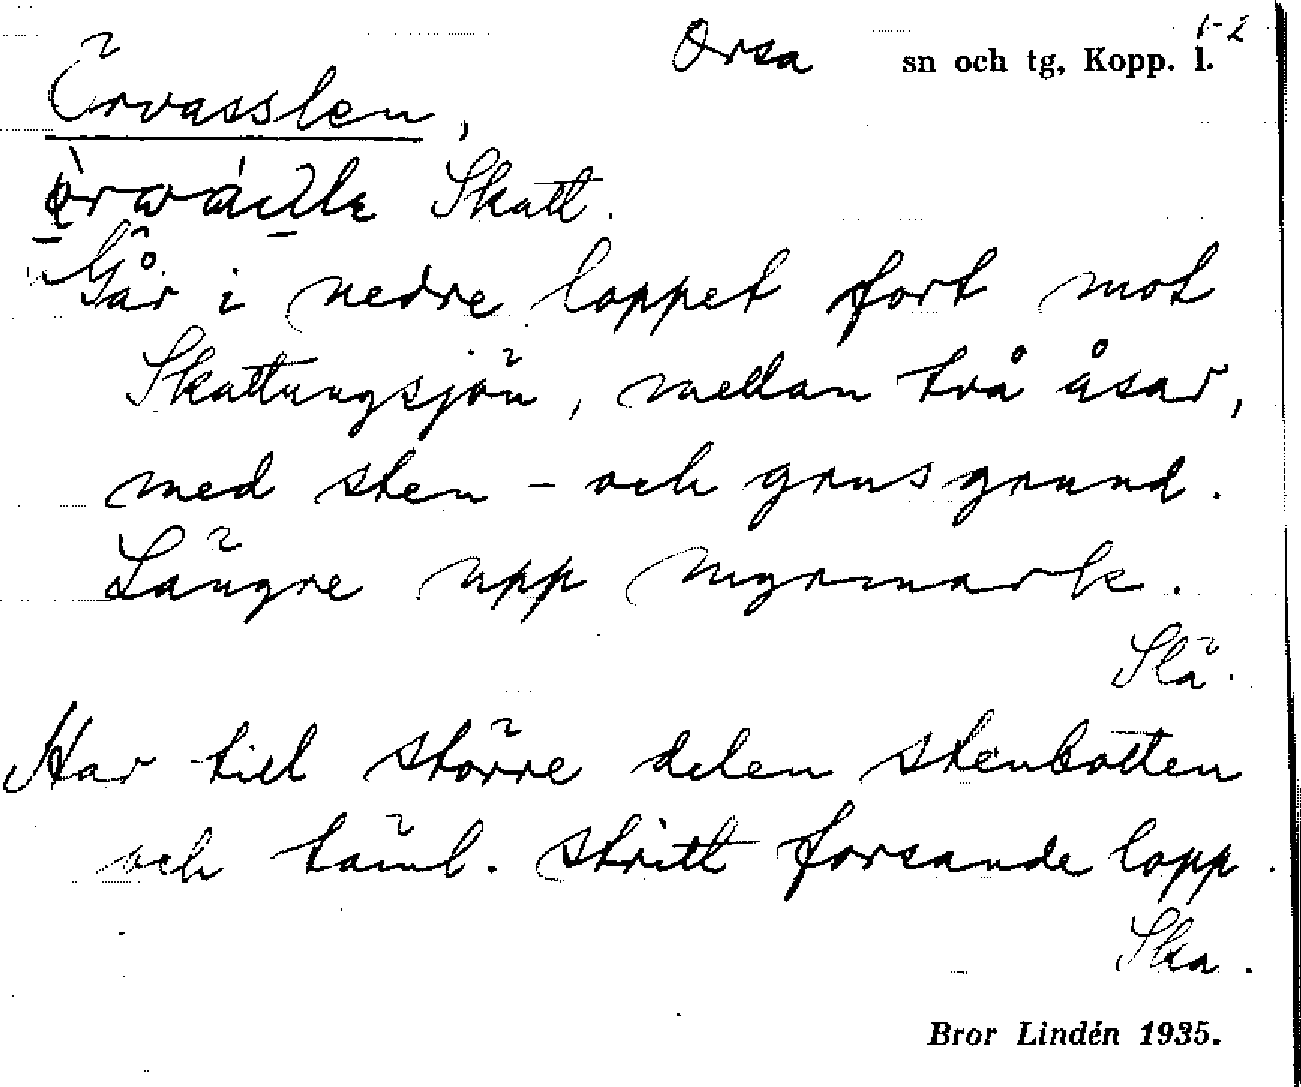 1-2
Orsa sn och tg, Kopp. l.
Örvasslen,
Skatt.
Går i nedre loppet fort mot
Skattungsjön, mellan två åsar,
med sten- och grusgrund.
Längre upp myrmark.
Slä.
Har till större delen stenbotten
och täml. stritt forsande lopp.
Ska.
Bror Lindén 1935.